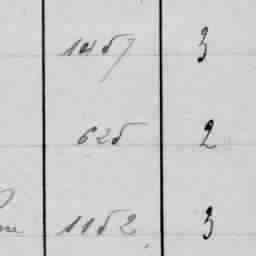 1457 3
625 2
1152 3